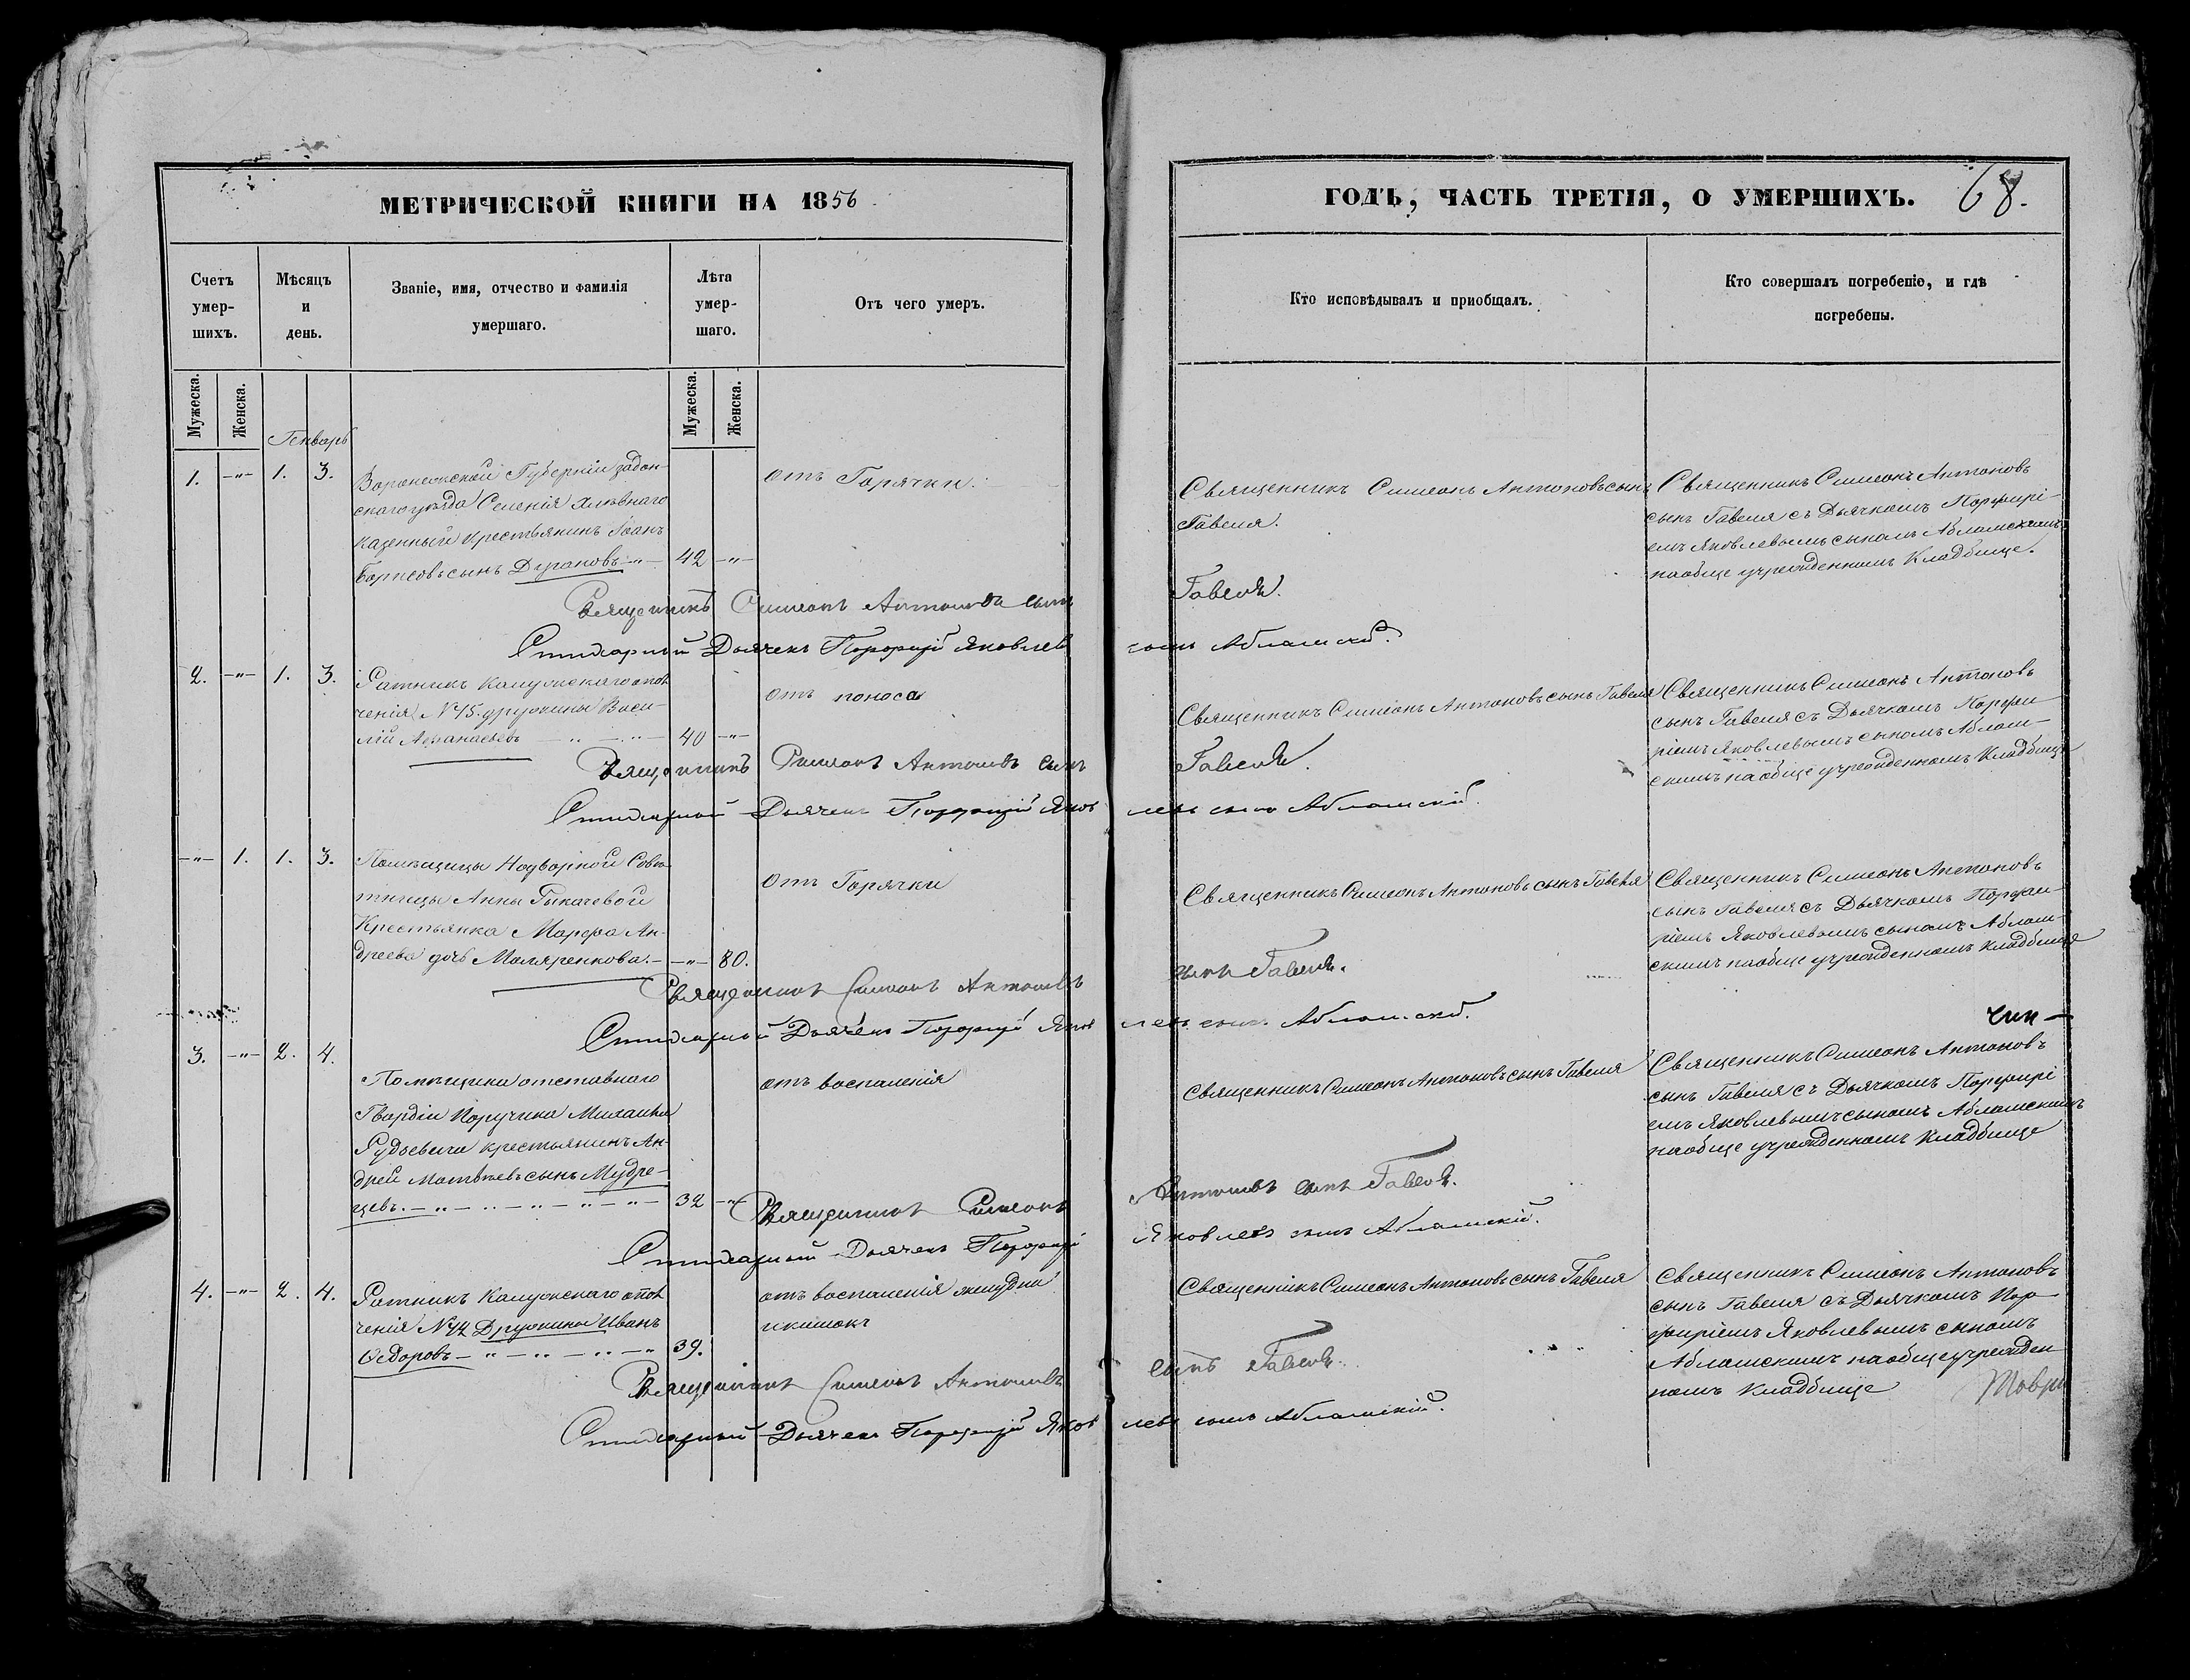 МЕТРИЧЕСКОЙ КНИГИ НА 1856
Счетъ умер-шихъ.
Мѣсяцъ и день.
Званіе, имя, отчество и фамилія умершаго.
Лѣта умер-шаго.
Отъ чего умеръ.
Мужеска. Женска.
Мужеска. Женска.
Генварь
1. -"- 1. 3.
Воронежской Губерніи задон-
скаго уезда Селенія Хлѣвнаго
казенный крестьянинъ Іоанъ
Борисовъ сынъ Дураковъ -"- 42 -"-
отъ Горячки.
Священникъ Симеонъ Антоновъ сынъ
Стихарный Дьячекъ Порфирій Яковлев
2. -"- 1. 3.
Ратникъ Калужскаго опол
ченія N 45. дружины Васи-
лій Афанасьевъ - " - " - 40 -"-
отъ поноса
Священникъ Симеонъ Антоновъ сынъ
Стихарный Дьячекъ Порфирій Яков
-"- 1. 1. 3.
Помѣщицы Надворной Совѣ-
тницы Анны Рыкачевой
Крестьянка Марфа Ан-
дреева дочь Маляренкова. - -"- 80.
Отъ Горячки
Священникъ Симеонъ Антоновъ
Стихарный Дьячекъ Порфирій Яков
3. -"- 2. 4.
Помѣщика отставнаго
Гвардіи Поручика Михаила
Рудзевича крестьянинъ Ан-
дрей Матвѣевъ сынъ Мудре-
цевъ. - " - " - " - " - 32 -"-
отъ воспаленія
Священникъ Симеонъ
Стихарный Дьячекъ Порфирій
4. -"- 2. 4.
Ратникъ Калужскаго опол
ченія N 42 Дружины Иванъ
Ѳедоровъ - " - " - " - " 39.
отъ воспаленія желудка
и кишокъ
Священникъ Симеонъ Антоновъ
Стихарный Дьячекъ Порфирій Яков
ГОДЪ, ЧАСТЬ ТРЕТІЯ, О УМЕРШИХЪ. 68.
Кто исповѣдывалъ и приобщалъ.
Кто совершалъ погребеніе, и гдѣ погребены.
Священникъ Симеонъ Антоновъ сынъ
Гавеля.
Священникъ Симеонъ Антоновъ
сынъ Гавеля съ Дьячкомъ Порфирі-
емъ Яковлевымъ сыномъ Абламскимъ
на обще учрежденномъ Кладбище.
Гавеля.
сынъ Абламскій.
Священникъ Симеонъ Антоновъ сынъ Гавеля
Священникъ Симеонъ Антоновъ
сынъ Гавеля съ Дьячкомъ Порфи-
ріемъ Яковлевымъ сыномъ Аблам-
скимъ на обще учрежденномъ Кладбище
Гавеля.
левъ сынъ Абламскій.
Священникъ Симеонъ Антоновъ сынъ Гавеля
Священникъ Симеонъ Антоновъ
сынъ Гавеля съ Дьячкомъ Порфи-
ріемъ Яковлевымъ сыномъ Аблам-
скимъ на обще учрежденномъ кладбище
сынъ Гавеля.
левъ сынъ Абламскій.
Священникъ Симеонъ Антоновъ сынъ Гавеля
Священникъ Симеонъ Антоновъ
сынъ Гавеля съ Дьячкомъ Порфирі
емъ Яковлевымъ сыномъ Абламскимъ
на обще учрежденномъ Кладбище
Антоновъ сынъ Гавеля.
Яковлевъ сынъ Абламскій.
Священникъ Симеонъ Антоновъ сынъ Гавеля
Священникъ Симеонъ Антоновъ
сынъ Гавеля съ Дьячкомъ Пор-
фиріемъ Яковлевымъ сыномъ
Абламскимъ на обще учрежден
номъ Кладбище
сынъ Гавеля.
левъ сынъ Абламскій.